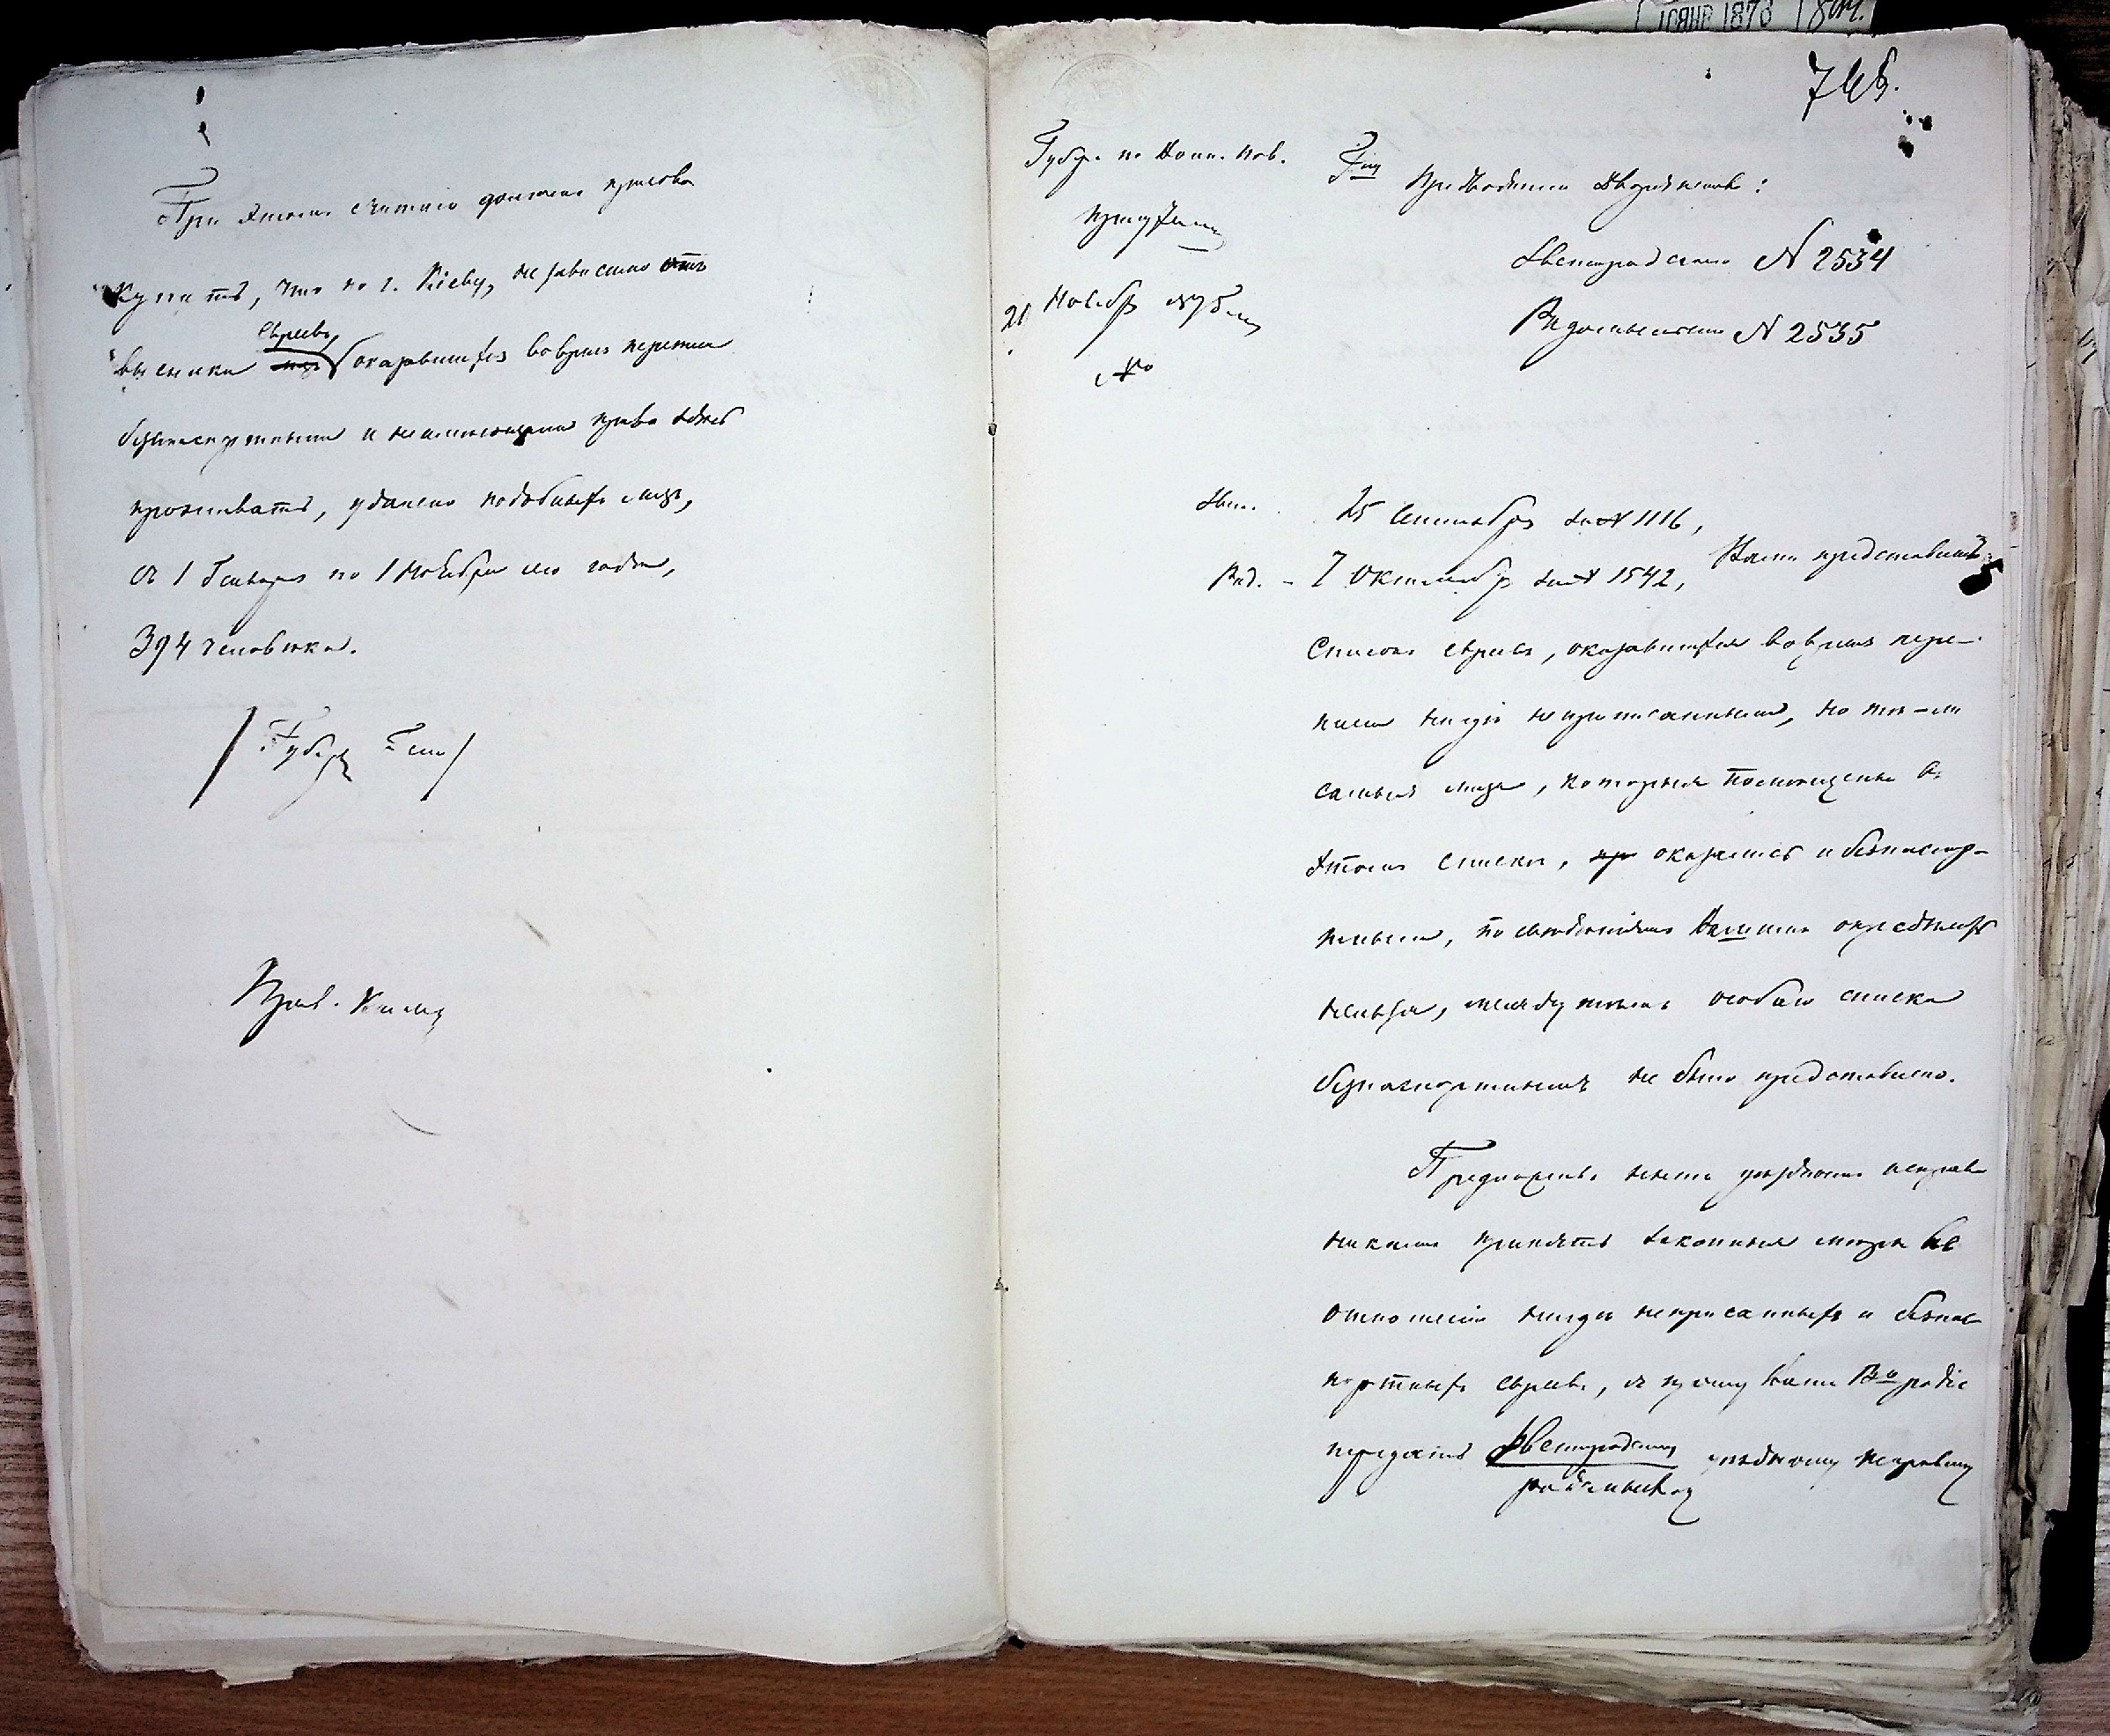 При этомъ считаю долгомъ присово
купить, что по г. Кіеву, не зависимо отъ
высылки евреевъ, оказавшихся во время переписи
безпаспортными и неимѣющими права здѣсь
проживать, удалено подобныхъ лицъ,
съ 1 Января по 1 Ноября сего года,
394 человѣка.
Губер
Прав. Канц
10 ЯНВ 1876
Губер. по воин. пов.
присутствіе
21 Ноября 1875
№
Гг. Предводителямъ Дворянства:
Звенигородскому № 2534
Радомысльскому № 2535
Звен. 25 Сентября за № 1116,
Рад. – 7 Октября за № 1542,
Вами представленъ
списокъ евреевъ, оказавшихся во время пере-
писи нигдѣ неприписанными, но тѣ-ли
самыя лица, которыя помѣщены въ
этомъ спискѣ, оказались и безпаспор-
тными, по свѣдѣніямъ Вашимъ опредѣлить
нельзя, между тѣмъ особаго списка
безпаспортнымъ не было представлено.
Предложивъ нынѣ уѣзднымъ исправ
никамъ принять законныя мѣры въ
отношеніи нигдѣ неприсанныхъ и безпас
портныхъ евреевъ, я прошу Ваше Вы родіе
передать Звенигородскому уѣздному исправнику
радомысльскому